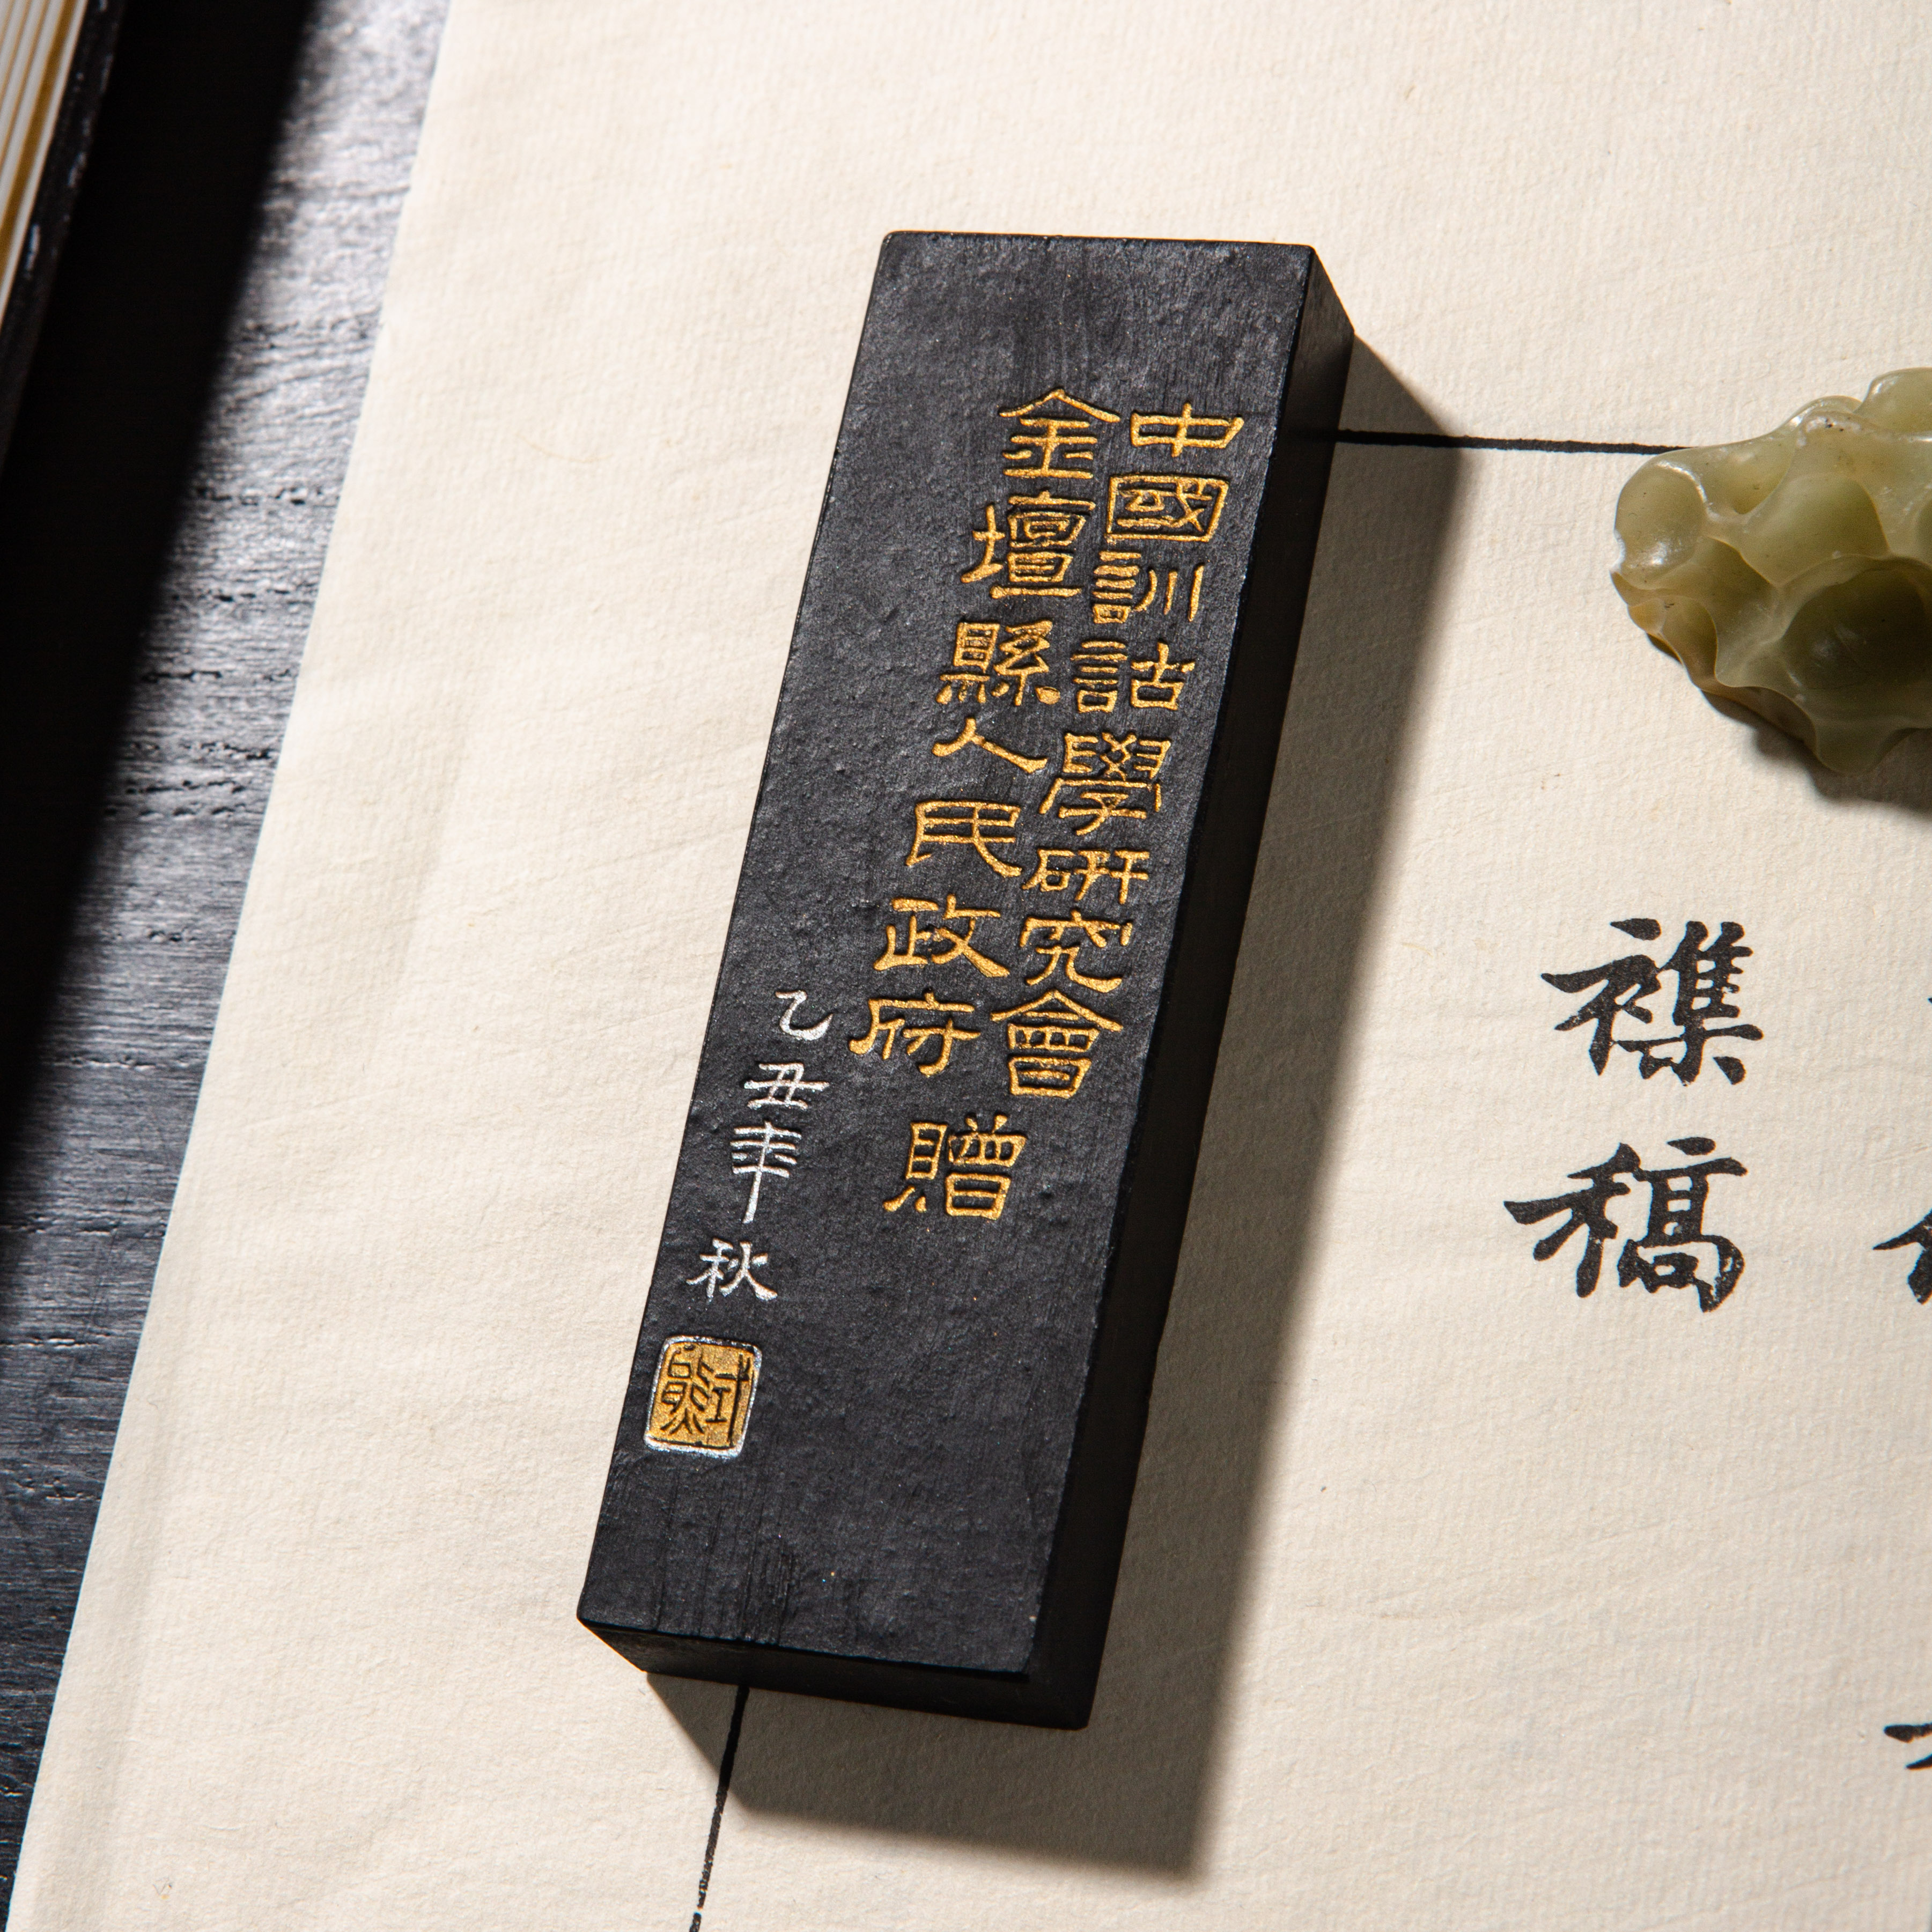 中國訓詁學研究會
金壇縣人民政府
贈
乙丑年秋
襍稿